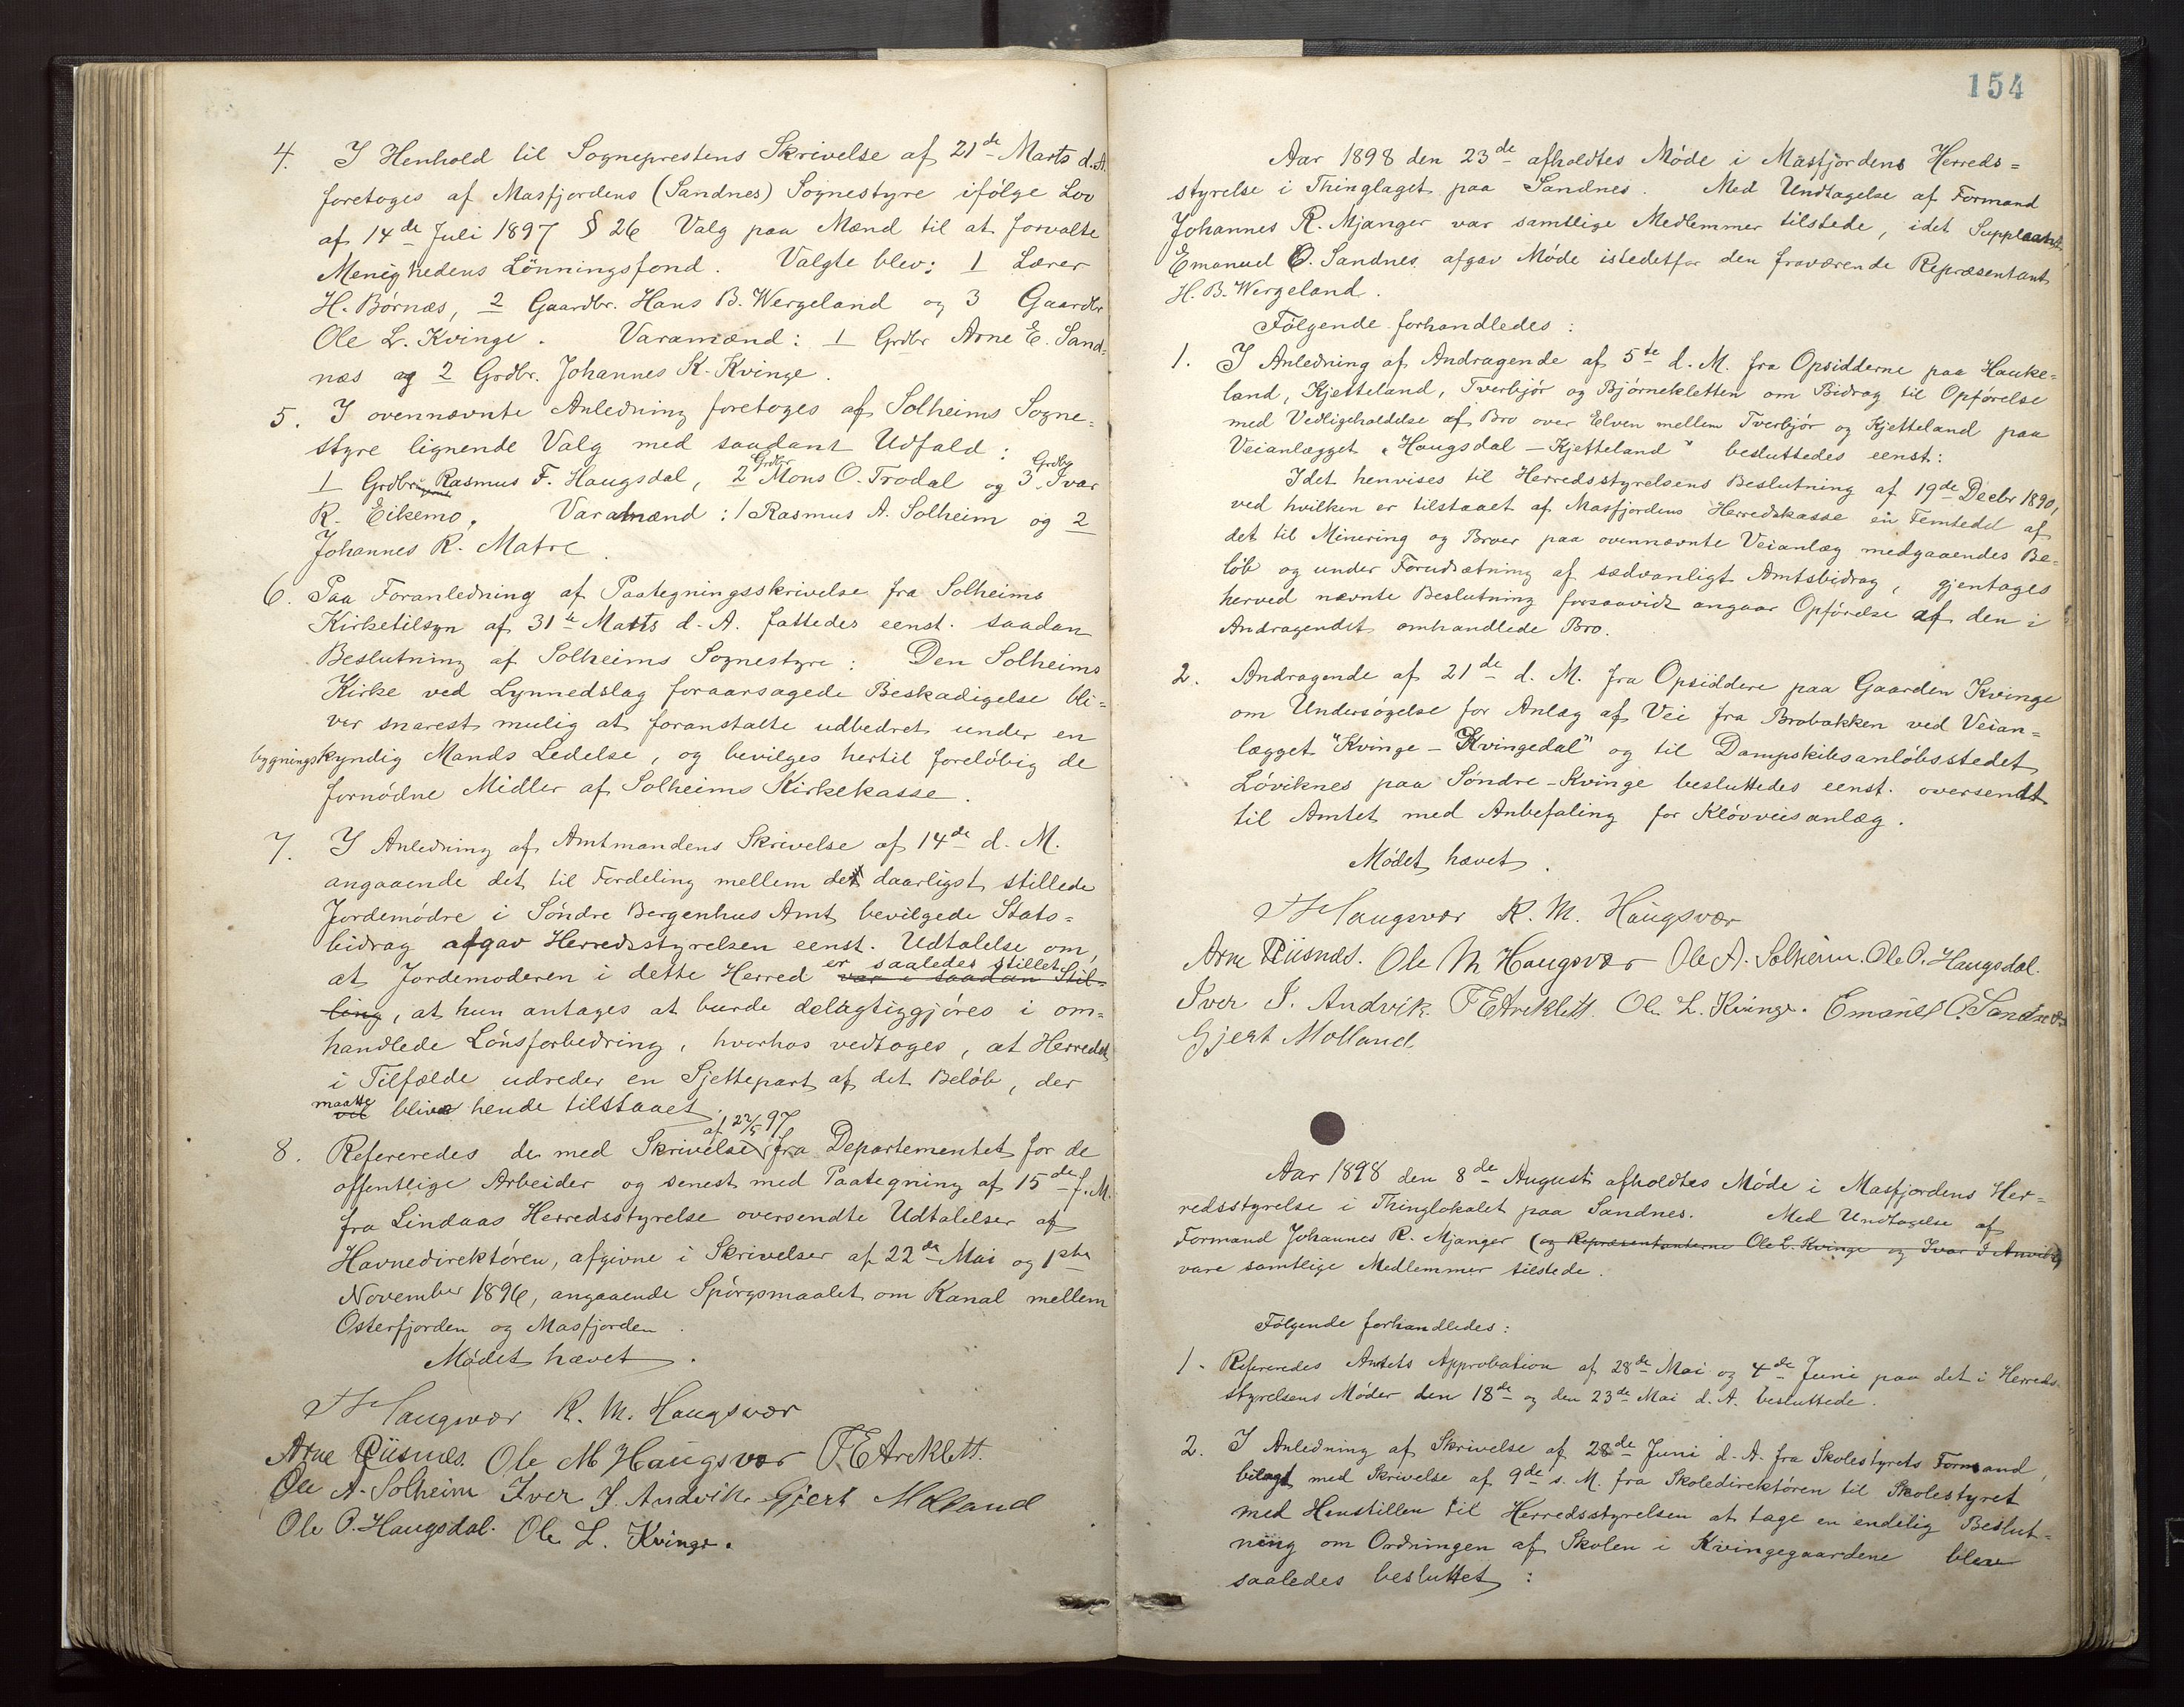 4. I Henhold til Sogneprestens Skrivelse af 21de Marts d. A.
foretoges af Masfjordens (Sandnes) Sognestyre ifølge Lov
af 14de Juli 1897 § 26 Valg paa Mænd til at forvalte
Menighedens Lønningsfond. Valgte blev: 1 Lærer
H. Børnæs, 2 Gaardbr. Hans B. Wergeland og 3 Gaardbr
Ole L. Kvinge. Varamænd: 1 Grdbr Arne E. Sand-
næs og 2 Grdbr. Johannes K. Kvinge.
5. I ovennævnte Anledning foretoges af Solheims Sogne-
styre lignende Valg med saadant Udfald:
1 Grdbr Rasmus F. Haugsdal, 2 Grdbr Mons O. Trodal og 3 Grdbr Ivar
R. Eikemo. Varamænd: 1 Rasmus A. Solheim og 2
Johannes R. Matre.
6. Paa Foranledning af Paategningsskrivelse fra Solheims
Kirketilsyn af 31te Marts d. A. fattedes eenst. saadan
Beslutning af Solheims Sognestyre: Den Solheims
Kirke ved Lynnedslag foraarsagede Beskadigelse bli-
ver snarest mulig at foranstalte udbedret under en
bygningskyndig Mands Ledelse, og bevilges hertil foreløbig de
fornødne Midler af Solheims Kirkekasse.
7. I Anledning af Amtmandens Skrivelse af 14de d. M.
angaaende det til Fordeling mellem de daarligst stillede
Jordemødre i Søndre Bergenhus Amt bevilgede Stats-
bidrag afgav Herredsstyrelsen eenst. Udtalelse om,
at Jordemoderen i dette Herred er saaledes stillet var i saadan Stil-
ling, at hun antages at burde delagtiggjøres i om-
handlede Lønsforbedring, hvorhos vedtoges, at Herredet
i Tilfælde udreder en Sjettepart af det Beløb, der
maatte vil blive hende tilstaaet.
8. Refereredes de med Skrivelse af 22/5 97 fra Departementet for de
offentlige Arbeider og senest med Paategning af 15de f. M.
fra Lindaas Herredsstyrelse oversendte Udtalelser af
Havnedirektøren, afgivne i Skrivelser af 22de Mai og 1ste
November 1896, angaaende Spørgsmaalet om Kanal mellem
Osterfjorden og Masfjorden.
Mødet hævet.
Haugsvær R. M. Haugsvær
Arne Riisnæs. Ole M Haugsvær F E Areklett.
Ole A. Solheim Iver I. Andvik Gjert Molland
Ole O. Haugsdal. Ole L. Kvinge.
154
Aar 1898 den 23de afholdtes Møde i Masfjordens Herreds-
styrelse i Thinglaget paa Sandnes. Med Undtagelse af Formand
Johannes R. Mjanger var samtlige Medlemmer tilstede, idet Suppleant
Emanuel O. Sandnes afgav Møde istedetfor den fraværende Repræsentant
H. B. Wergeland.
Følgende forhandledes:
1. I Anledning af Andragende af 5te d. M. fra Opsidderne paa Hauke-
land, Kjetteland, Tverbjør og Bjørnekletten om Bidrag til Opførelse
med Vedligeholdelse af Bro over Elven mellem Tverbjør og Kjetteland paa
Veianlægget "Haugsdal - Kjetteland" besluttedes eenst:
Idet henvises til Herredsstyrelsens Beslutning af 19de Decbr 1890,
ved hvilken er tilstaaet af Masfjordens Herredskasse en Femtedel af
det til Minering og Broer paa ovennævnte Veianlæg medgaaendes Be-
løb og under Forudsætning af sædvanligt Amtsbidrag, gjentages
herved nævnte Beslutning forsaavidt angaar Opførelse af den i
Andragendet omhandlede Bro.
2. Andragende af 21de d. M. fra Opsiddere paa Gaarden Kvinge
om Undersøgelse for Anlæg af Vei fra Brobakken ved Veian-
lægget "Kvinge - Kvingedal" og til Dampskibsanløbsstedet
Løviknes paa Søndre-Kvinge besluttedes eenst. oversendt
til Amtet med Anbefaling for Kløvveisanlæg.
Mødet hævet.
Haugsvær R. M. Haugsvær
Arne Riisnæs. Ole M Haugsvær Ole A. Solheim. Ole O. Haugsdal.
Iver I. Andvik. F E Areklett. Ole L. Kvinge. Emanuel O. Sandnes
Gjert Molland
Aar 1898 den 8de August afholdtes Møde i Masfjordens Her-
redsstyrelse i Thinglokalet paa Sandnes. Med Undtagelse af
Formand Johannes R. Mjanger (og Repræsentanterne Ole L. Kvinge og Ivar I Anvik)
vare samtlige Medlemmer tilstede.
Følgende forhandledes:
1. Refereredes Amtets Approbation af 28de Mai og 4de Juni paa det i Herreds-
styrelsens Møder den 18de og den 23de Mai d. A. besluttede.
2. I Anledning af Skrivelse af 28de Juni d. A. fra Skolestyrets Formand,
bilagt med Skrivelse af 9de s. M. fra Skoledirektøren til Skolestyret
med Henstillen til Herredsstyrelsen at tage en endelig Beslut-
ning om Ordningen af Skolen i Kvingegaardene blev
saaledes besluttet: